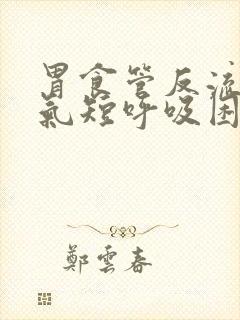 胃食管反流
氣短呼吸困
鄭雲春